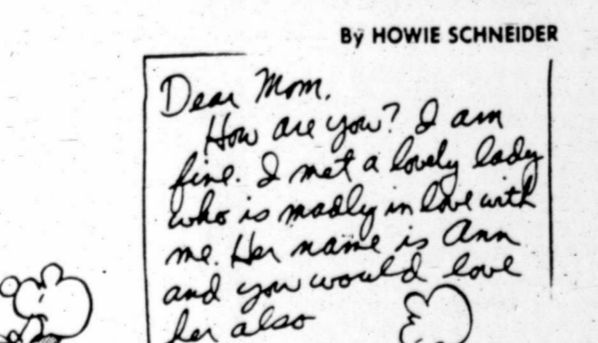 By HOWIE SCHNEIDER
Dear Mom,
How are you? I am
fine. I met a lovely lady
who is madly in love with
me. Her name is Ann
and you would love
her also